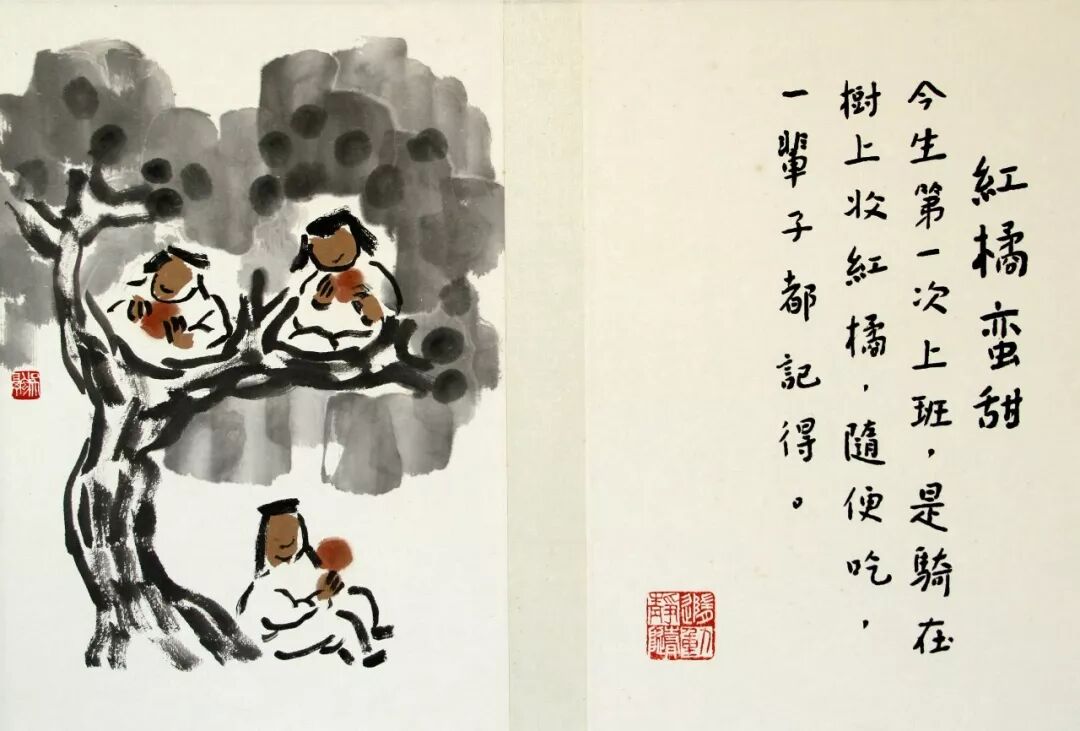 紅橘蛮甜
今生第一次上班，是騎在
樹上收紅橘，隨便吃，
一輩子都記得。